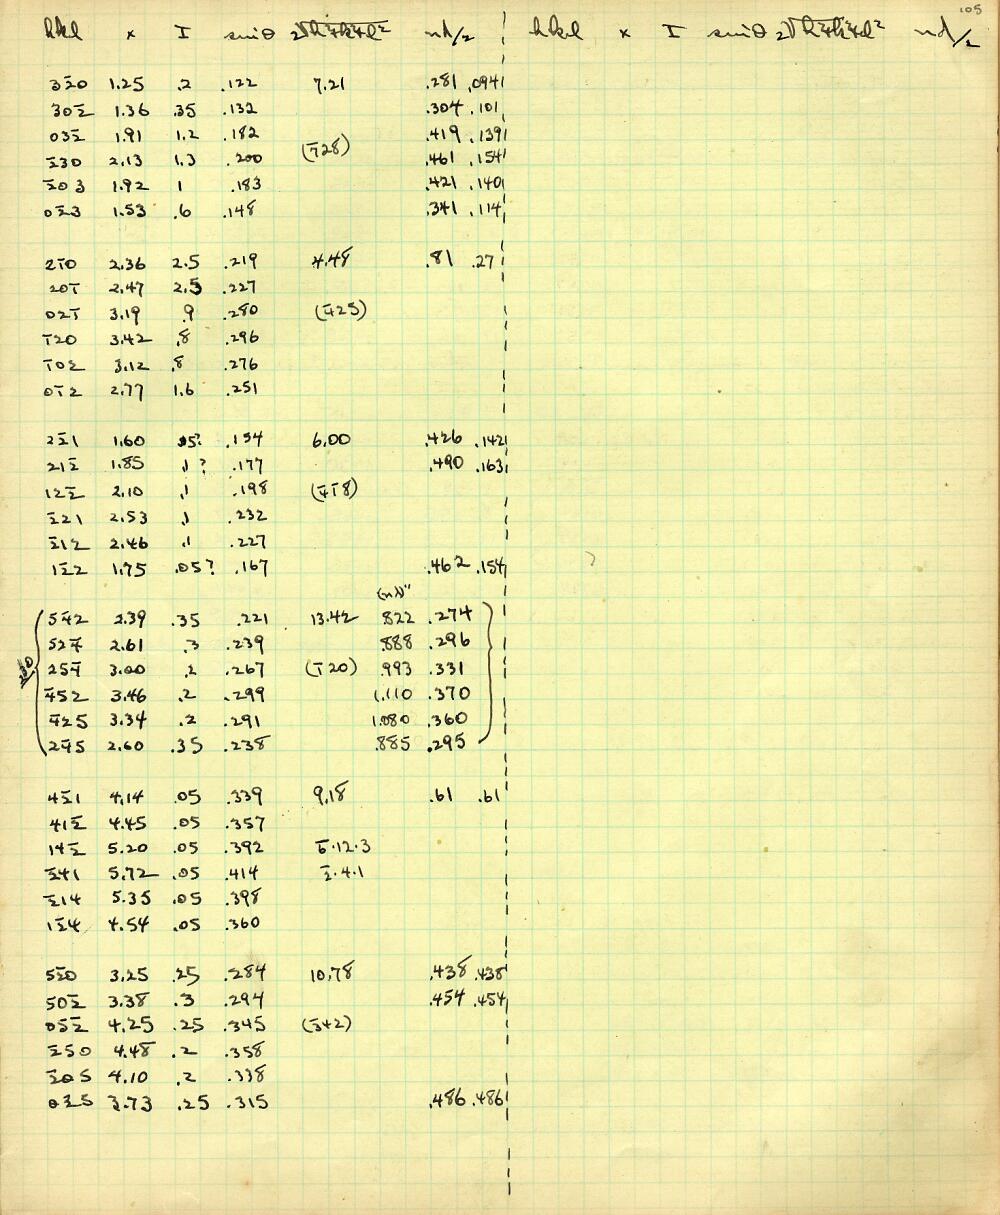 105
hkl x I sinθ 2√h²+k²+l² nλ/2 hkl x I sinθ 2√h²+k²+l² nλ/2
32̄0 1.25 .2 .122 7.21 .281 .094
302̄ 1.36 .35 .132 .304 .101
032̄ 1.91 1.2 .182 .419 .139
2̄30 2.13 1.3 .200 (1̄28) .461 .154
2̄03 1.92 1 .183 .421 .140
02̄3 1.53 .6 .148 .341 .114
21̄0 2.36 2.5 .219 4.48 .81 .27
201̄ 2.47 2.5 .227
021̄ 3.19 .9 .280 (4̄25)
1̄20 3.42 .8 .296
1̄02 3.12 .8 .276
01̄2 2.77 1.6 .251
22̄1 1.60 .05? .154 6.00 .426 .142
212̄ 1.85 .1? .177 .490 .163
122̄ 2.10 .1 .198 (4̄1̄8)
2̄21 2.53 .1 .232
2̄12 2.46 .1 .227
12̄2 1.75 .05? .167 .462 .154
(nλ)"
54̄2 2.39 .35 .221 13.42 .822 .274
524̄ 2.61 .3 .239 .888 .296
254̄ 3.00 .2 .267 (1̄20) .993 .331
4̄52 3.46 .2 .299 1.110 .370
4̄25 3.34 .2 .291 1.080 .360
24̄5 2.60 .35 .238 .885 .295
42̄1 4.14 .05 .339 9.18 .61 .61
412̄ 4.45 .05 .357
142̄ 5.20 .05 .392 6̄·12·3
2̄41 5.72 .05 .414 2̄·4·1
2̄14 5.35 .05 .398
12̄4 4.54 .05 .360
52̄0 3.25 .25 .284 10.78 .438 .438
502̄ 3.38 .3 .294 .454 .454
052̄ 4.25 .25 .345 (3̄42)
2̄50 4.48 .2 .358
2̄05 4.10 .2 .338
02̄5 3.73 .25 .315 .486 .486